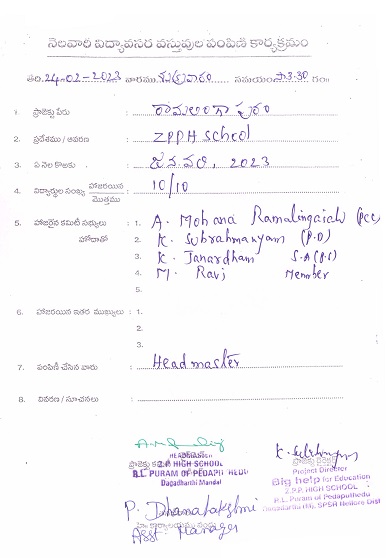 నెలవారీ విద్యావసర వస్తువుల పంపిణీ కార్యక్రమం
తేది: 24-02-2023 వారము శుక్రవారం సమయం సా3.30 గం
1. ప్రాజెక్టు పేరు : రామలింగాపురం
2. ప్రదేశము / ఆవరణ : ZPPH school
3. ఏ నెల కొరకు : జనవరి, 2023
4. విద్యార్థుల సంఖ్య హాజరయిన / మొత్తము : 10/10
5. హాజరైన కమిటీ సభ్యులు : 1. A. Mohana Ramalingaiah (PCC)
హోదాతో 2. K. Subrahmanyam (P.D)
3. K. Janardham S.A (P.S)
4. M. Ravi Member
5.
6. హాజరయిన ఇతర ముఖ్యులు : 1.
2.
3.
7. పంపిణీ చేసిన వారు : Headmaster
8. వివరణ / సూచనలు :
HEADMASTER
Z.P. HIGH SCHOOL
R.L. PURAM OF PEDAPUTHEDU
Dagadharthi Mandal
ప్రాజెక్టు డైరెక్టర్
Project Director
Big help for Education
Z.P.P. HIGH SCHOOL
R.L. Puram of Pedaputhedu
Dagadarthi (M), SPSR Nellore Dist
P. Dhanalakshmi
Asst. Manager